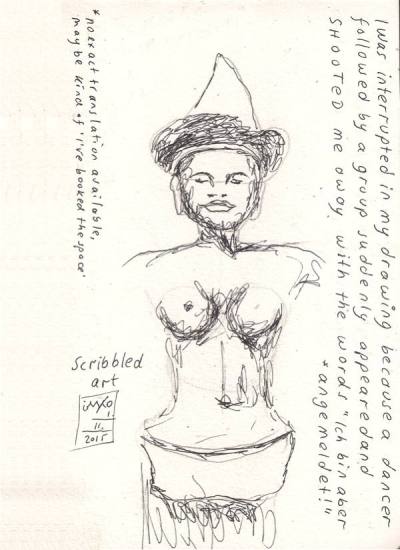 I was interrupted in my drawing because a dancer
followed by a group suddenly appearedand
SHOOTED me away with the words "Ich bin aber
*angemeldet!"
*no exact translation available,
may be kind of 'I've booked the space'
Scribbled
art
1.
11.
2015